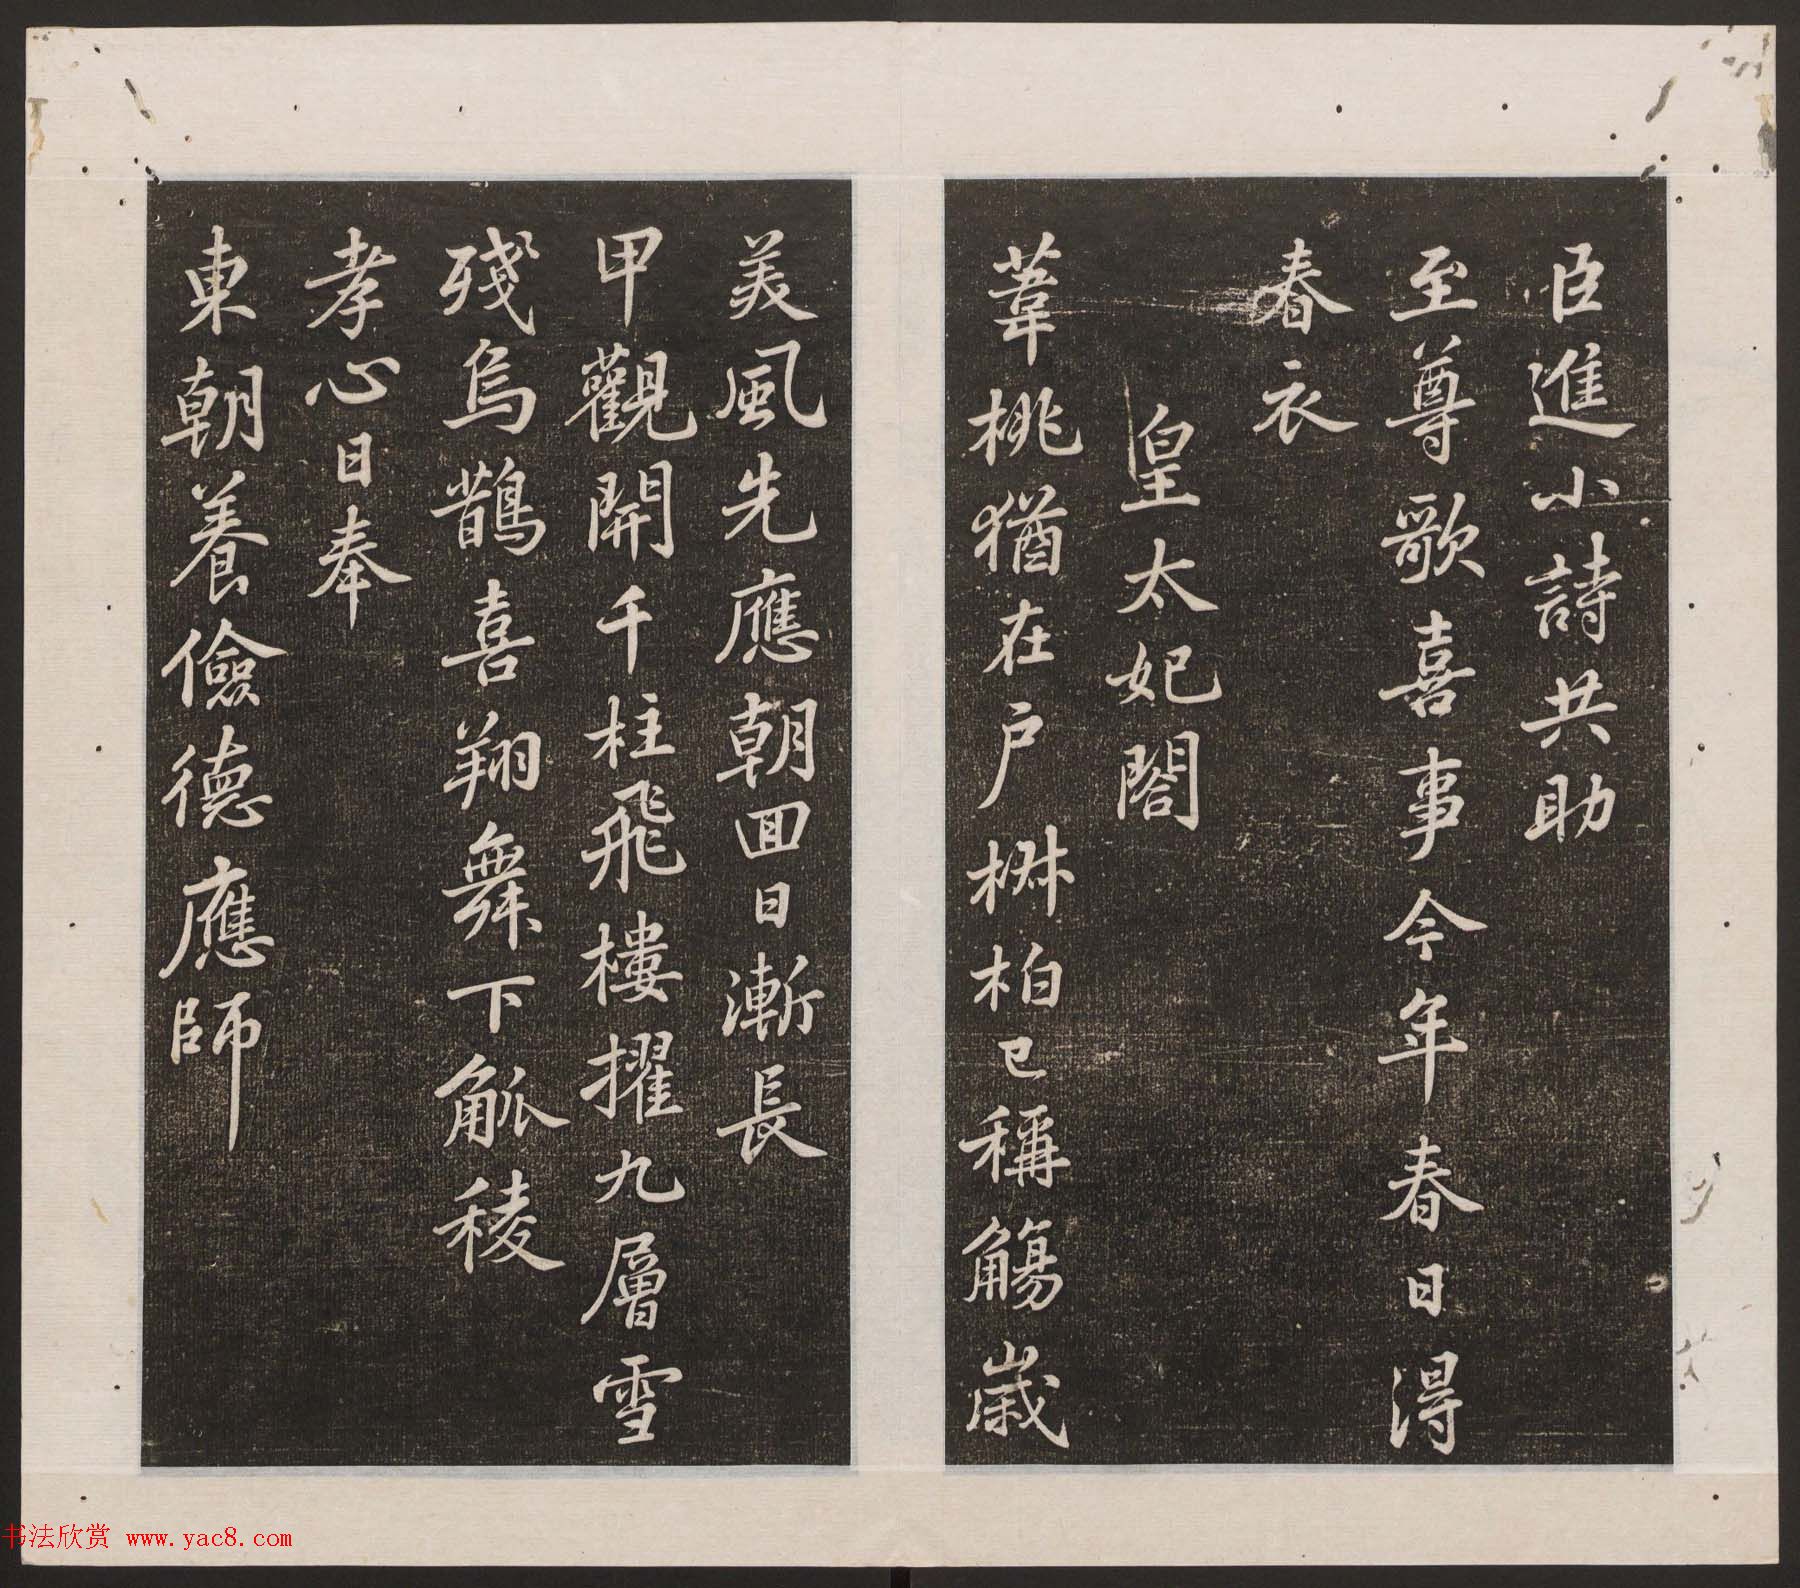 臣進小詩共助
至尊歌喜事今年春日得
春衣
皇太妃閤
葦桃猶在户椒柏已稱觴歲
美風先應朝回日漸長
甲觀開千柱飛樓擢九層雪
殘烏鵲喜翔舞下觚稜
孝心日奉
東朝養儉德應師
书法欣赏 www.yac8.com